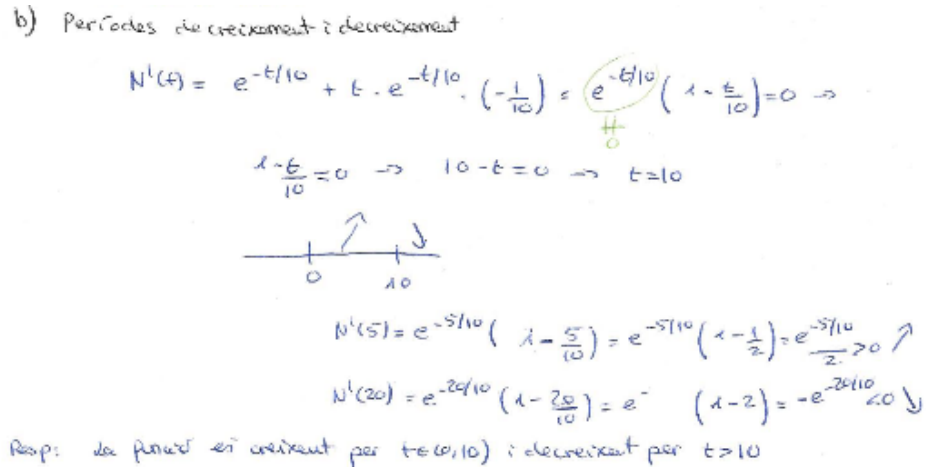 b) Períodes de creixement i decreixement
N'(t) = e^{-t/10} + t · e^{-t/10} · (-1/10) = e^{-t/10} (1 - t/10) = 0 →
≠
0
1 - t/10 = 0 → 10 - t = 0 → t = 10
↗ ↘
0 10
N'(5) = e^{-5/10} (1 - 5/10) = e^{-5/10} (1 - 1/2) = e^{-5/10}/2 > 0 ↗
N'(20) = e^{-20/10} (1 - 20/10) = e^{-} (1 - 2) = -e^{-20/10} < 0 ↘
Resp: La funció és creixent per t ∈ (0,10) i decreixent per t > 10